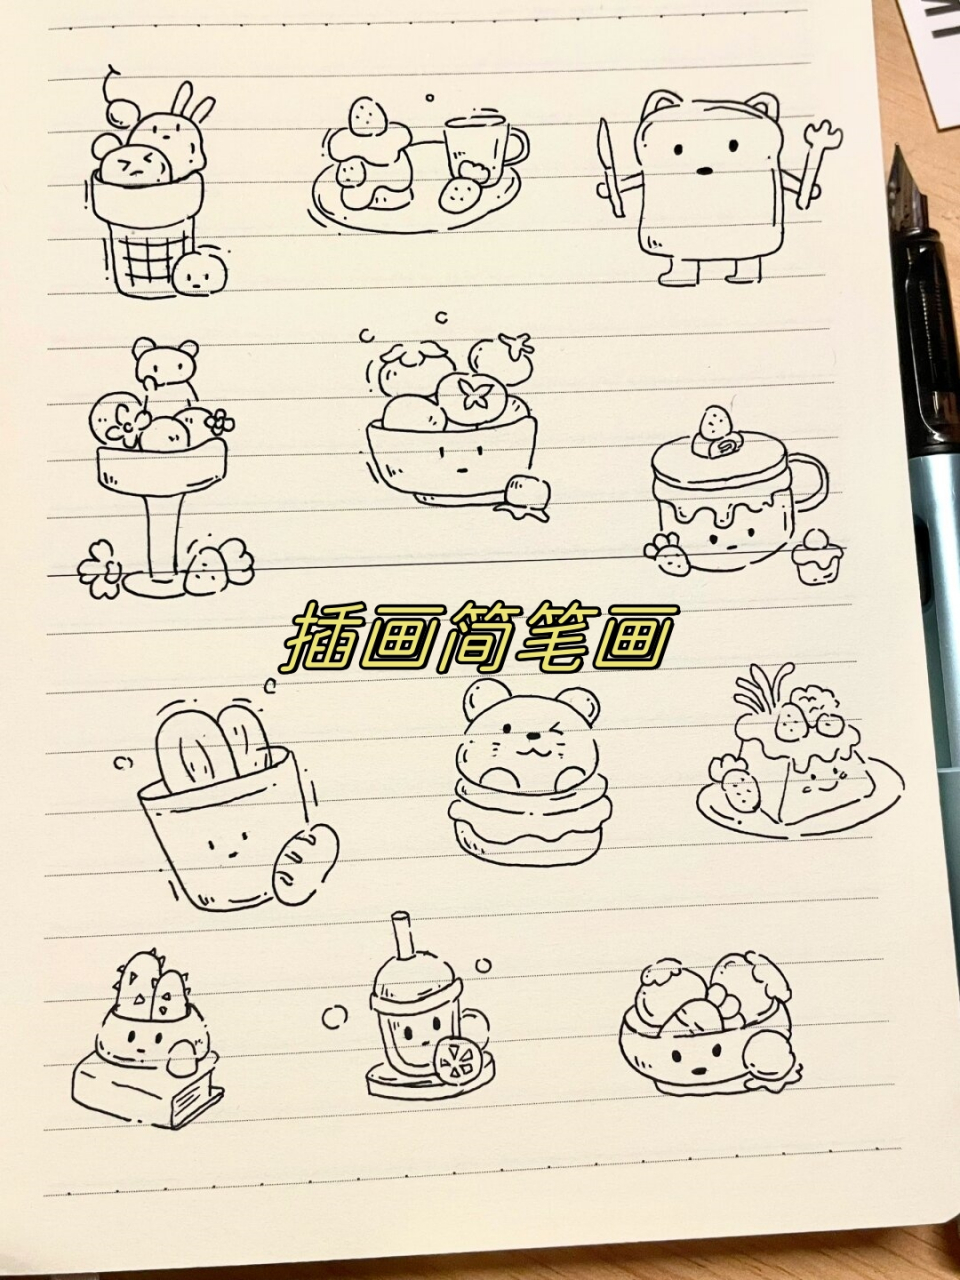 插画简笔画